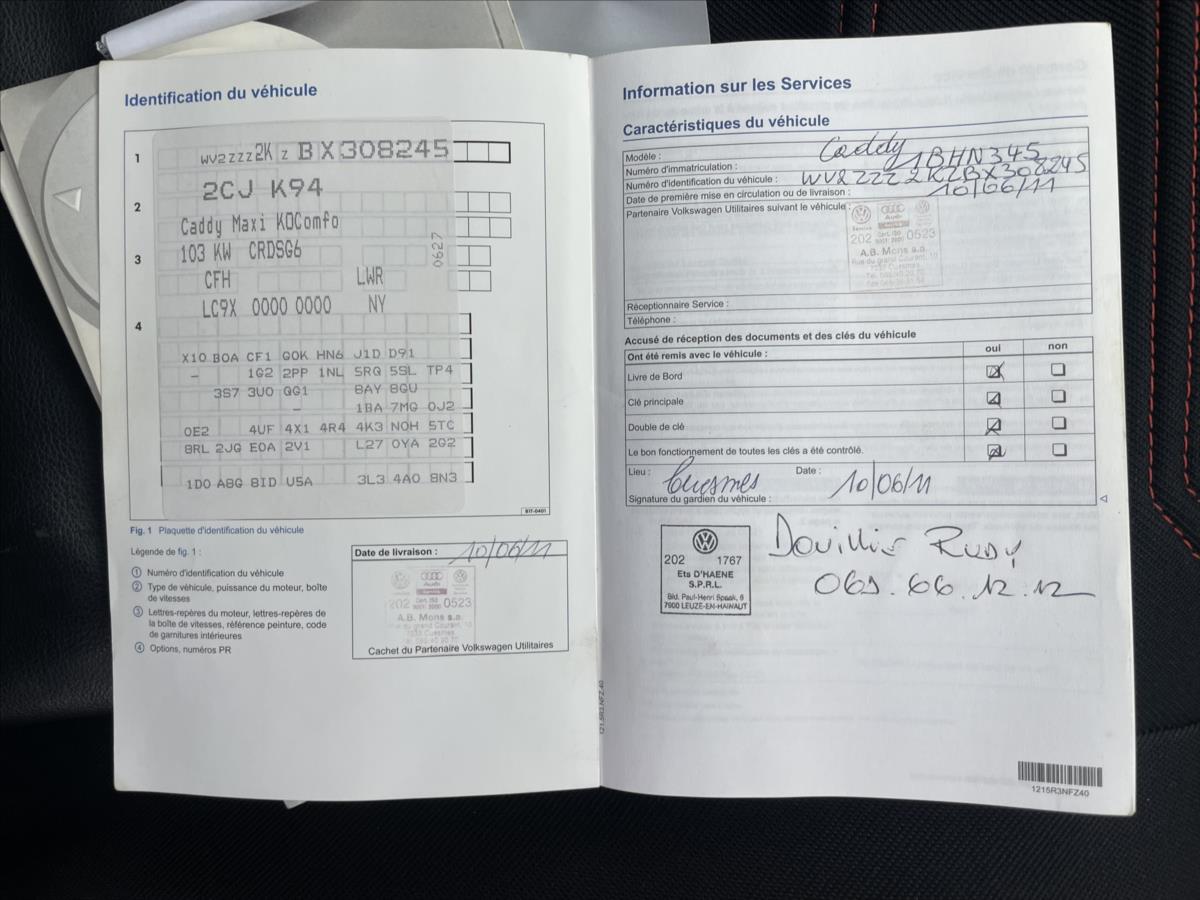 Identification du véhicule
1
WV2ZZZ2K Z BX308245
2CJ K94
2
Caddy Maxi KOComfo
3
103 KW CRDSG6
0627
CFH LWR
LC9X 0000 0000 NY
4
X10 B0A CF1 G0K HN6 J1D D91
- 1G2 2PP 1NL 5RQ 5SL TP4
3S7 3U0 QG1 BAY 8GU
- 1BA 7MG 0J2
0E2 4UF 4X1 4R4 4K3 N0H 5TC
8RL 2JG E0A 2V1 L27 0YA 2G2
1D0 A8G 8ID U5A 3L3 4A0 8N3
B1T-0401
Fig. 1 Plaquette d'identification du véhicule
Légende de fig. 1 :
① Numéro d'identification du véhicule
② Type de véhicule, puissance du moteur, boîte
de vitesses
③ Lettres-repères du moteur, lettres-repères de
la boîte de vitesses, référence peinture, code
de garnitures intérieures
④ Options, numéros PR
Date de livraison : 10/06/11
Audi
Service
202 Cert. ISO 9001: 2000 0523
A.B. Mons s.a.
Rue du grand Courant, 10
7033 Cuesmes
Cachet du Partenaire Volkswagen Utilitaires
Information sur les Services
Caractéristiques du véhicule
Modèle : Caddy
Numéro d'immatriculation : 1BHN345
Numéro d'identification du véhicule : WV2ZZZ2KZBX308245
Date de première mise en circulation ou de livraison : 10/06/11
Partenaire Volkswagen Utilitaires suivant le véhicule :
Service Audi Service
202 Cert. ISO 9001: 2000 0523
A.B. Mons s.a.
Rue du grand Courant, 10
7033 Cuesmes
Réceptionnaire Service :
Téléphone :
Accusé de réception des documents et des clés du véhicule
Ont été remis avec le véhicule : oui non
Livre de Bord
Clé principale
Double de clé
Le bon fonctionnement de toutes les clés a été contrôlé.
Lieu : Cuesmes Date : 10/06/11
Signature du gardien du véhicule :
202 1767
Ets D'HAENE
S.P.R.L.
Bld. Paul-Henri Spaak, 6
7900 LEUZE-EN-HAINAUT
Douillie Rudy
069.66.12.12
121.5R3.NFZ.40
1215R3NFZ40